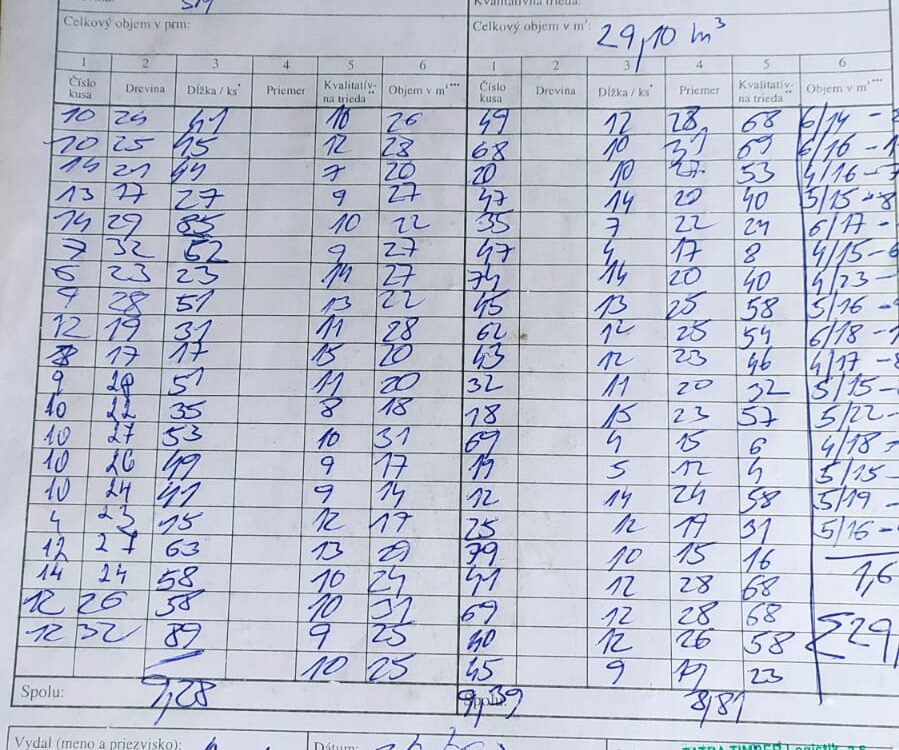 Celkový objem v prm: Celkový objem v m³: 29,10 m³
1 2 3 4 5 6 1 2 3 4 5 6
Číslo kusa Drevina Dĺžka / ks* Priemer Kvalitatívna trieda** Objem v m³*** Číslo kusa Drevina Dĺžka / ks* Priemer Kvalitatívna trieda** Objem v m³***
10 24 41 10 26 49 12 28 68 6/14 -
10 25 45 12 28 68 10 31 69 6/16 - 1
14 21 44 7 20 20 10 27 53 4/16 - 7
13 17 27 9 27 47 14 20 40 5/15 - 8
14 29 85 10 22 35 7 22 24 6/17 -
7 32 52 9 27 47 4 17 8 4/15 - 6
6 23 23 14 27 74 14 20 40 4/23 -
9 28 51 13 22 45 13 25 58 5/16 -
12 19 31 11 28 62 12 25 54 6/18 - 1
8 17 17 15 20 43 12 23 46 4/17 - 8
9 28 51 11 20 32 11 20 32 5/15 -
10 22 35 8 18 18 15 23 57 5/22 -
10 27 53 10 31 69 4 15 6 4/18 -
10 26 49 9 17 19 5 12 4 5/15 -
10 24 41 9 14 12 14 24 58 5/19 -
4 23 15 12 17 25 12 19 31 5/16 -
12 27 63 13 29 79 10 15 16
14 24 58 10 24 41 12 28 68 1,6
12 26 58 10 31 69 12 28 68
12 32 89 9 25 40 12 26 58 Σ 29,
10 25 45 9 19 23
Spolu: 9,28 9,39 8,81
Vydal (meno a priezvisko): Dátum: